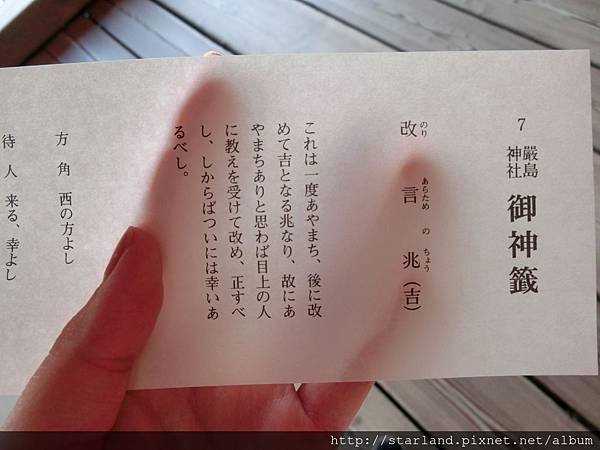 7
嚴島神社
御神籤
改言兆(吉)
のり あらため の ちょう
これは一度あやまち、後に改
めて吉となる兆なり、故にあ
やまちありと思わば目上の人
に教えを受けて改め、正すべ
し、しからばついには幸いあ
るべし。
方 角 西の方よし
待 人 来る、幸よし
http://starland.pixnet.net/album